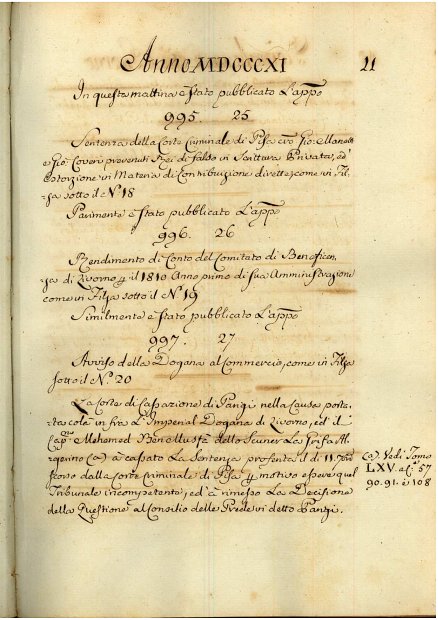 Anno MDCCCXI 21
In questa mattina è stato pubblicato L'appo
995. 25
Sentenza della Corte Criminale di Pisa cõro Gio: Manetti
e Gio: Coveri prevenuti Rei di falso in Scrittura Privata, ed
Estorzione in Materia di Contribuzione dirette, come in Fil-
za sotto il N.º 18
Parimente è stato pubblicato L'appo
996. 26
Rendimento di Conto del Comitato di Beneficen-
za di Livorno p il 1810 Anno primo di sua Amministrazione
come in Filza sotto il N.º 19
Similmente è stato pubblicato L'appo
997. 27
Avviso della Dogana al Commercio, come in Filza
sotto il N.º 20
La Corte di Cassazione di Parigi nella Causa porta-
ta colà in fra L'Imperial Dogana di Livorno, ed il
Capn. Mohomed Ben dello Scuner La Prisa Al-
gerino (a) à cassato La Sentenza proferita il dì 11.
scorso dalla Corte Criminale di Pisa p motivo essere quel
Tribunale incompetente, ed à rimesso La Decisione
della Questione al Consilio delle Prede in detto Parigi.
(a). Vedi Tomo
LXV. a C. 57
90. 91. e 108